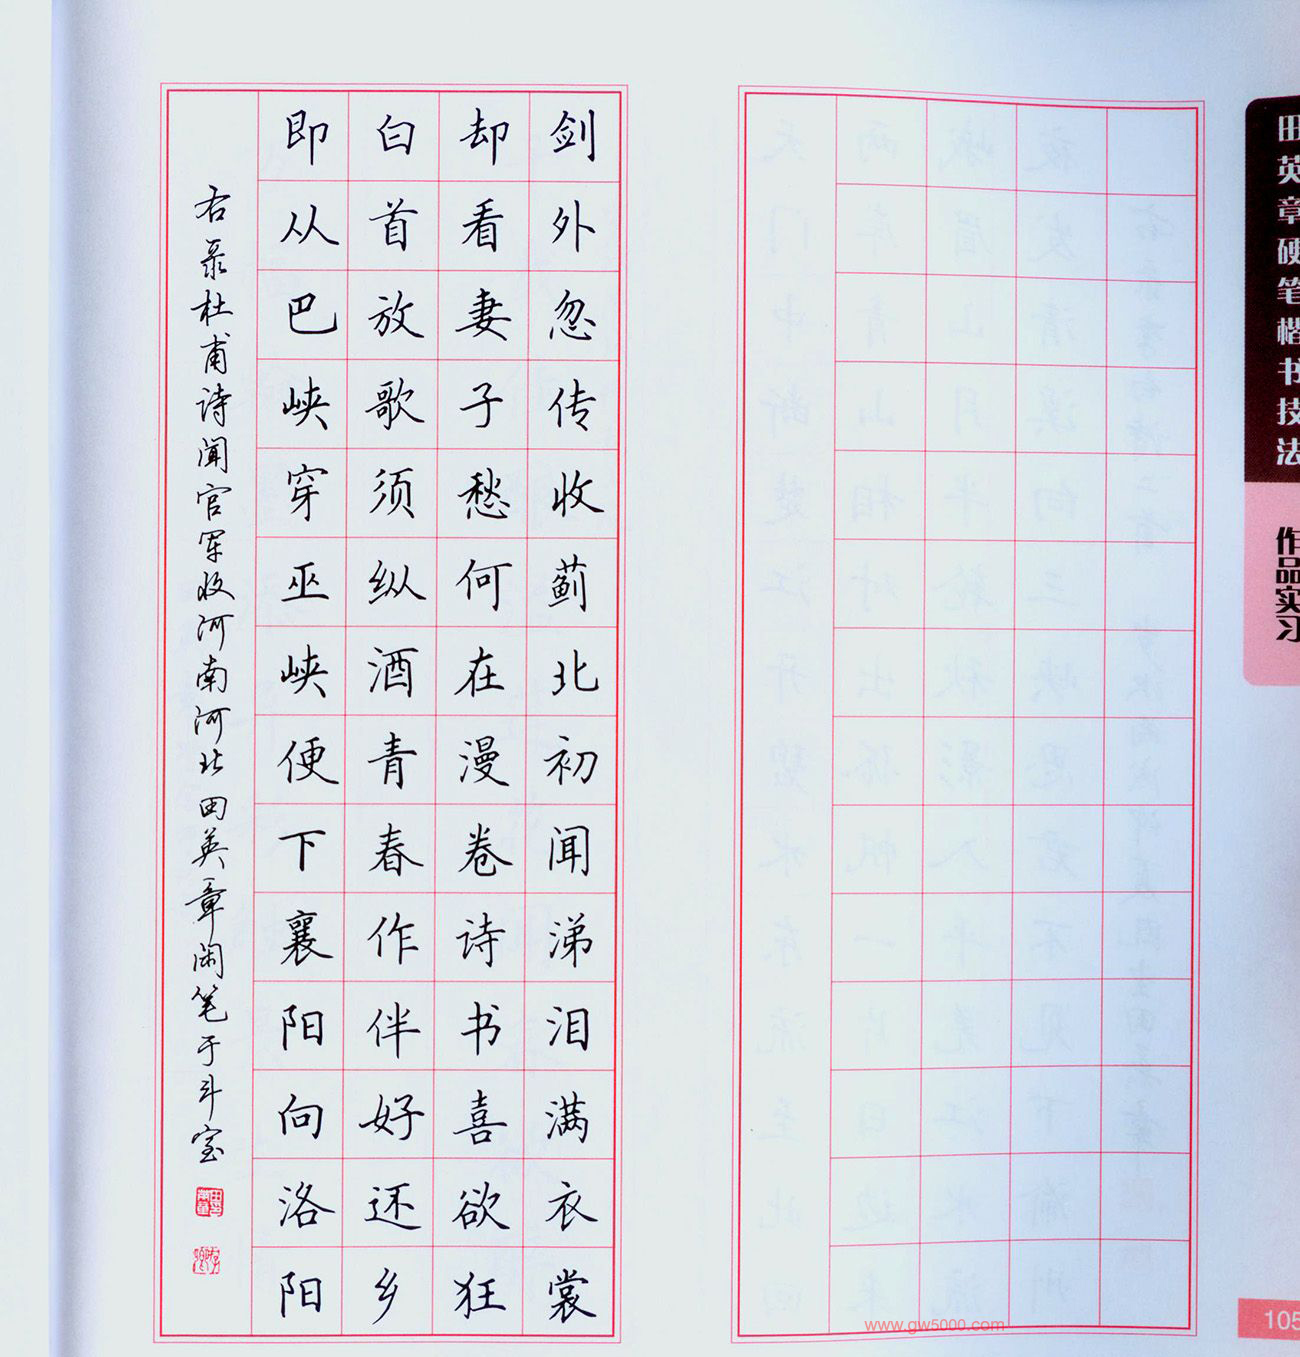 剑外忽传收蓟北初闻涕泪满衣裳
却看妻子愁何在漫卷诗书喜欲狂
白首放歌须纵酒青春作伴好还乡
即从巴峡穿巫峡便下襄阳向洛阳
右录杜甫诗闻官军收河南河北 田英章闲笔于斗室
田英章硬笔楷书技法
作品实习
105
www.gw5000.com